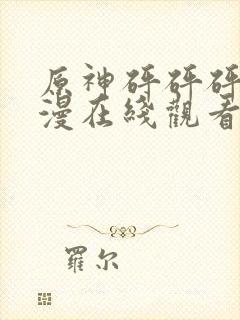 原神砰砰砰
漫在綫觀看
羅尔